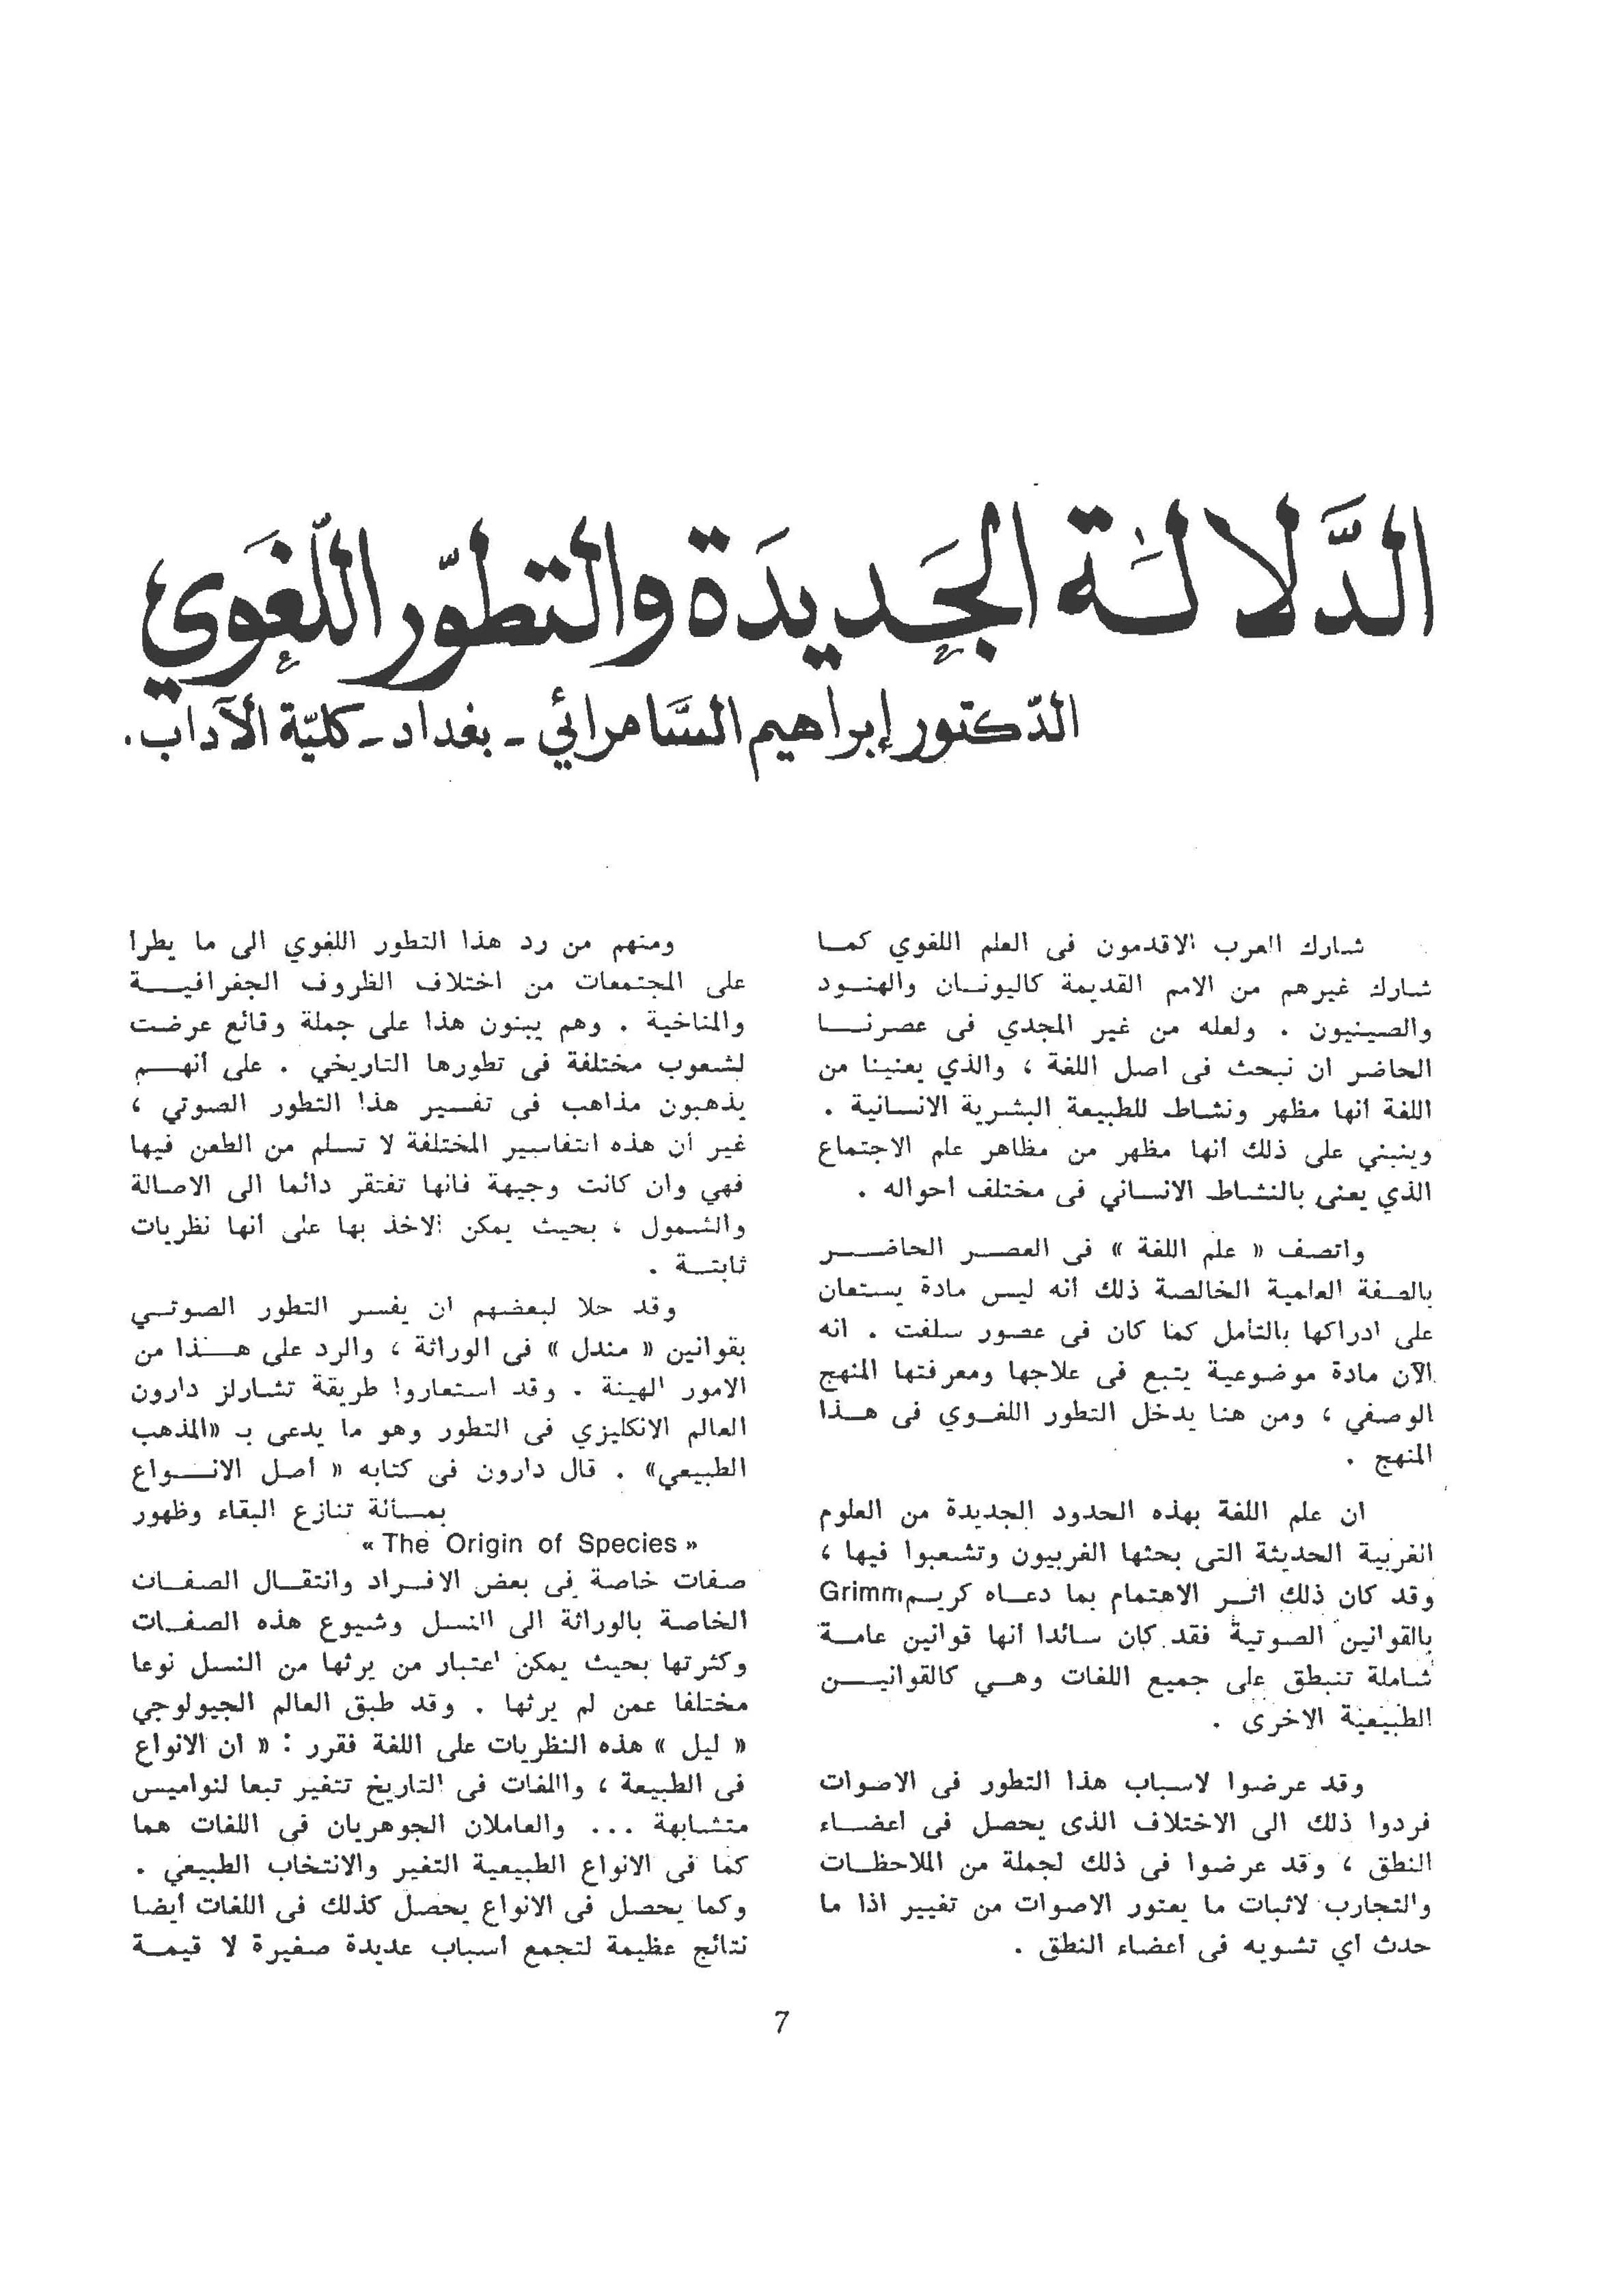 الدَّلالَة الجَديدَة والتطوّر اللّغَوي
الدّكتور إبراهيم السَّامرائي - بغداد - كليّة الآداب.
شارك العرب الاقدمون فى العلم اللغوي كما
شارك غيرهم من الامم القديمة كاليونان والهنود
والصينيون . ولعله من غير المجدي فى عصرنا
الحاضر ان نبحث فى اصل اللغة ، والذي يعنينا من
اللغة أنها مظهر ونشاط للطبيعة البشرية الانسانية .
وينبني على ذلك أنها مظهر من مظاهر علم الاجتماع
الذي يعنى بالنشاط الانساني فى مختلف أحواله .
واتصف « علم اللغة » فى العصر الحاضر
بالصفة العامية الخالصة ذلك أنه ليس مادة يستعان
على ادراكها بالتأمل كما كان فى عصور سلفت . انه
الآن مادة موضوعية يتبع فى علاجها ومعرفتها المنهج
الوصفي ، ومن هنا يدخل التطور اللغوي فى هذا
المنهج .
ان علم اللغة بهذه الحدود الجديدة من العلوم
الغربية الحديثة التى بحثها الغربيون وتشعبوا فيها ،
وقد كان ذلك اثر الاهتمام بما دعاه كريم Grimm
بالقوانين الصوتية فقد كان سائدا أنها قوانين عامة
شاملة تنبطق على جميع اللغات وهي كالقوانين
الطبيعية الاخرى .
وقد عرضوا لاسباب هذا التطور فى الاصوات
فردوا ذلك الى الاختلاف الذى يحصل فى أعضاء
النطق ، وقد عرضوا فى ذلك لجملة من الملاحظات
والتجارب لاثبات ما يعتور الاصوات من تغيير اذا ما
حدث أي تشويه فى أعضاء النطق .
ومنهم من رد هذا التطور اللغوي الى ما يطرا
على المجتمعات من اختلاف الظروف الجغرافية
والمناخية . وهم يبنون هذا على جملة وقائع عرضت
لشعوب مختلفة فى تطورها التاريخي . على أنهم
يذهبون مذاهب فى تفسير هذا التطور الصوتي ،
غير ان هذه التفاسير المختلفة لا تسلم من الطعن فيها
فهي وان كانت وجيهة فانها تفتقر دائما الى الاصالة
والشمول ، بحيث يمكن الاخذ بها على أنها نظريات
ثابتة .
وقد حلا لبعضهم ان يفسر التطور الصوتي
بقوانين « مندل » فى الوراثة ، والرد على هذا من
الامور الهينة . وقد استعاروا طريقة تشارلز دارون
العالم الانكليزي فى التطور وهو ما يدعى بـ «المذهب
الطبيعي» . قال دارون فى كتابه « أصل الانواع
بمسألة تنازع البقاء وظهور
« The Origin of Species »
صفات خاصة فى بعض الافراد وانتقال الصفات
الخاصة بالوراثة الى النسل وشيوع هذه الصفات
وكثرتها بحيث يمكن اعتبار من يرثها من النسل نوعا
مختلفا عمن لم يرثها . وقد طبق العالم الجيولوجي
« ليل » هذه النظريات على اللغة فقرر : « ان الانواع
فى الطبيعة ، واللغات فى التاريخ تتغير تبعا لنواميس
متشابهة ... والعاملان الجوهريان فى اللغات هما
كما فى الانواع الطبيعية التغير والانتخاب الطبيعي .
وكما يحصل فى الانواع يحصل كذلك فى اللغات أيضا
نتائج عظيمة لتجمع أسباب عديدة صغيرة لا قيمة
7